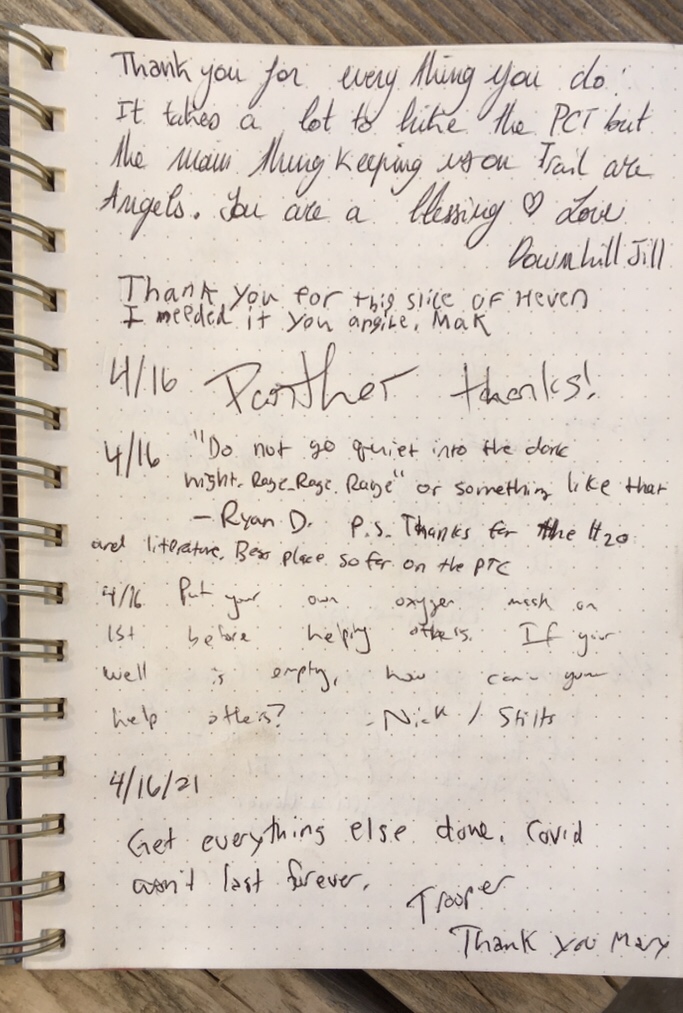 Thank you for every thing you do!
It takes a lot to hike the PCT but
the main thing keeping us on Trail are
Angels. You are a blessing ♡ Love
Downhill Jill
Thank you for this slice of Heven
I needed it you angile, Mak
4/16 Panther thanks!
4/16 "Do not go quiet into the dark
night. Rage. Rage. Rage" or something like that
- Ryan D. P.S. Thanks for the H2O
and literature. Bess place so far on the PTC
4/16 Put your own oxygen mask on
1st before helping others. If your
well is empty, how can you
help others? - Nick / Stilts
4/16/21
Get everything else done. Covid
won't last forever.
Trooper
Thank you Mary